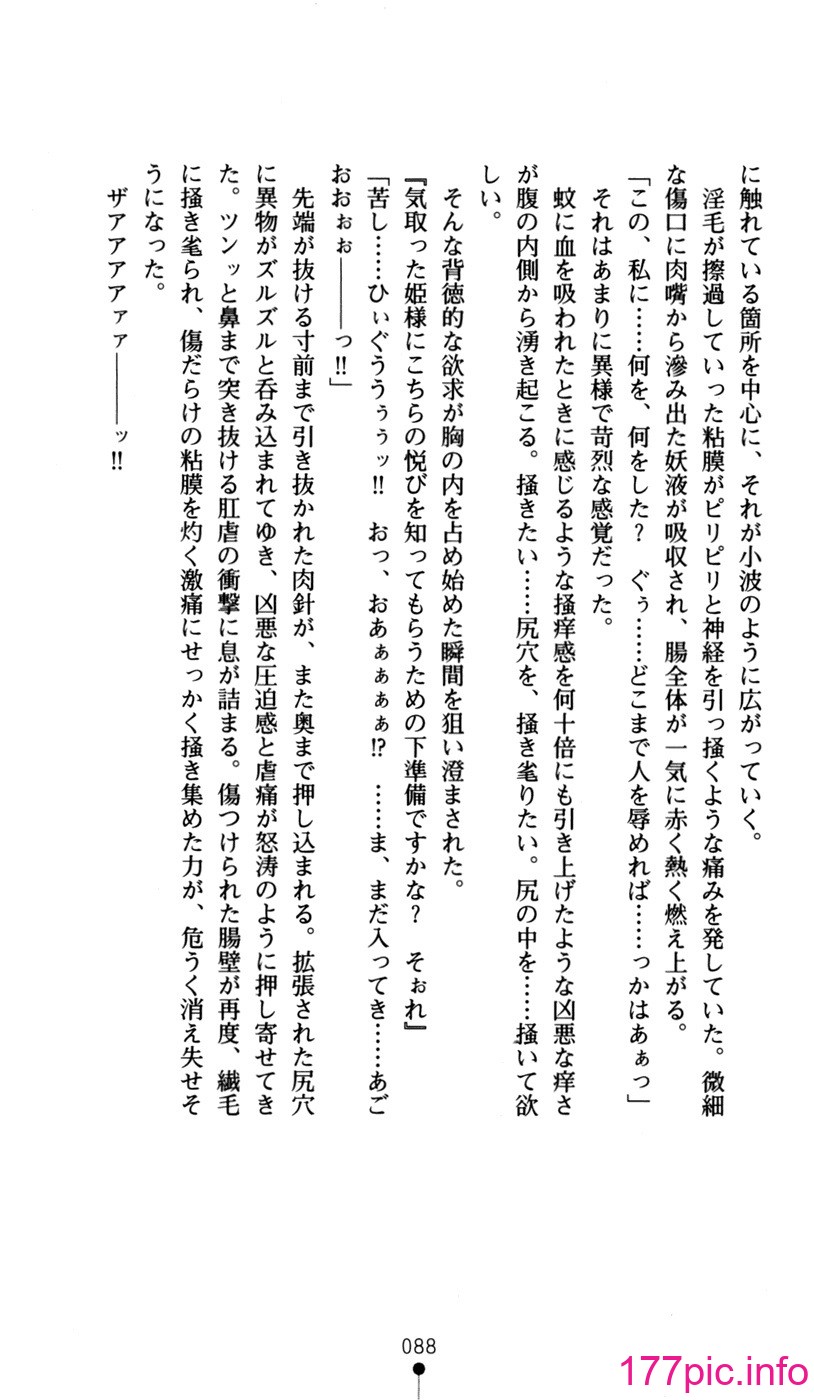 に触れている箇所を中心に、それが小波のように広がっていく。
淫毛が擦過していった粘膜がピリピリと神経を引っ掻くような痛みを発していた。微細
な傷口に肉嘴から滲み出た妖液が吸収され、腸全体が一気に赤く熱く燃え上がる。
「この、私に……何を、何をした？　ぐぅ……どこまで人を辱めれば……っかはあぁっ」
それはあまりに異様で苛烈な感覚だった。
蚊に血を吸われたときに感じるような掻痒感を何十倍にも引き上げたような凶悪な痒さ
が腹の内側から湧き起こる。掻きたい……尻穴を、掻き毟りたい。尻の中を……掻いて欲
しい。
そんな背徳的な欲求が胸の内を占め始めた瞬間を狙い澄まされた。
『気取った姫様にこちらの悦びを知ってもらうための下準備ですかな？　そぉれ』
「苦し……ひぃぐううぅぅッ!!　おっ、おあぁぁぁぁ!?　……ま、まだ入ってき……あご
おおぉぉ――っ!!」
先端が抜ける寸前まで引き抜かれた肉針が、また奥まで押し込まれる。拡張された尻穴
に異物がズルズルと呑み込まれてゆき、凶悪な圧迫感と虐痛が怒涛のように押し寄せてき
た。ツンッと鼻まで突き抜ける肛虐の衝撃に息が詰まる。傷つけられた腸壁が再度、繊毛
に掻き毟られ、傷だらけの粘膜を灼く激痛にせっかく掻き集めた力が、危うく消え失せそ
うになった。
ザアアアアァァ――ッ!!
088
177pic.info